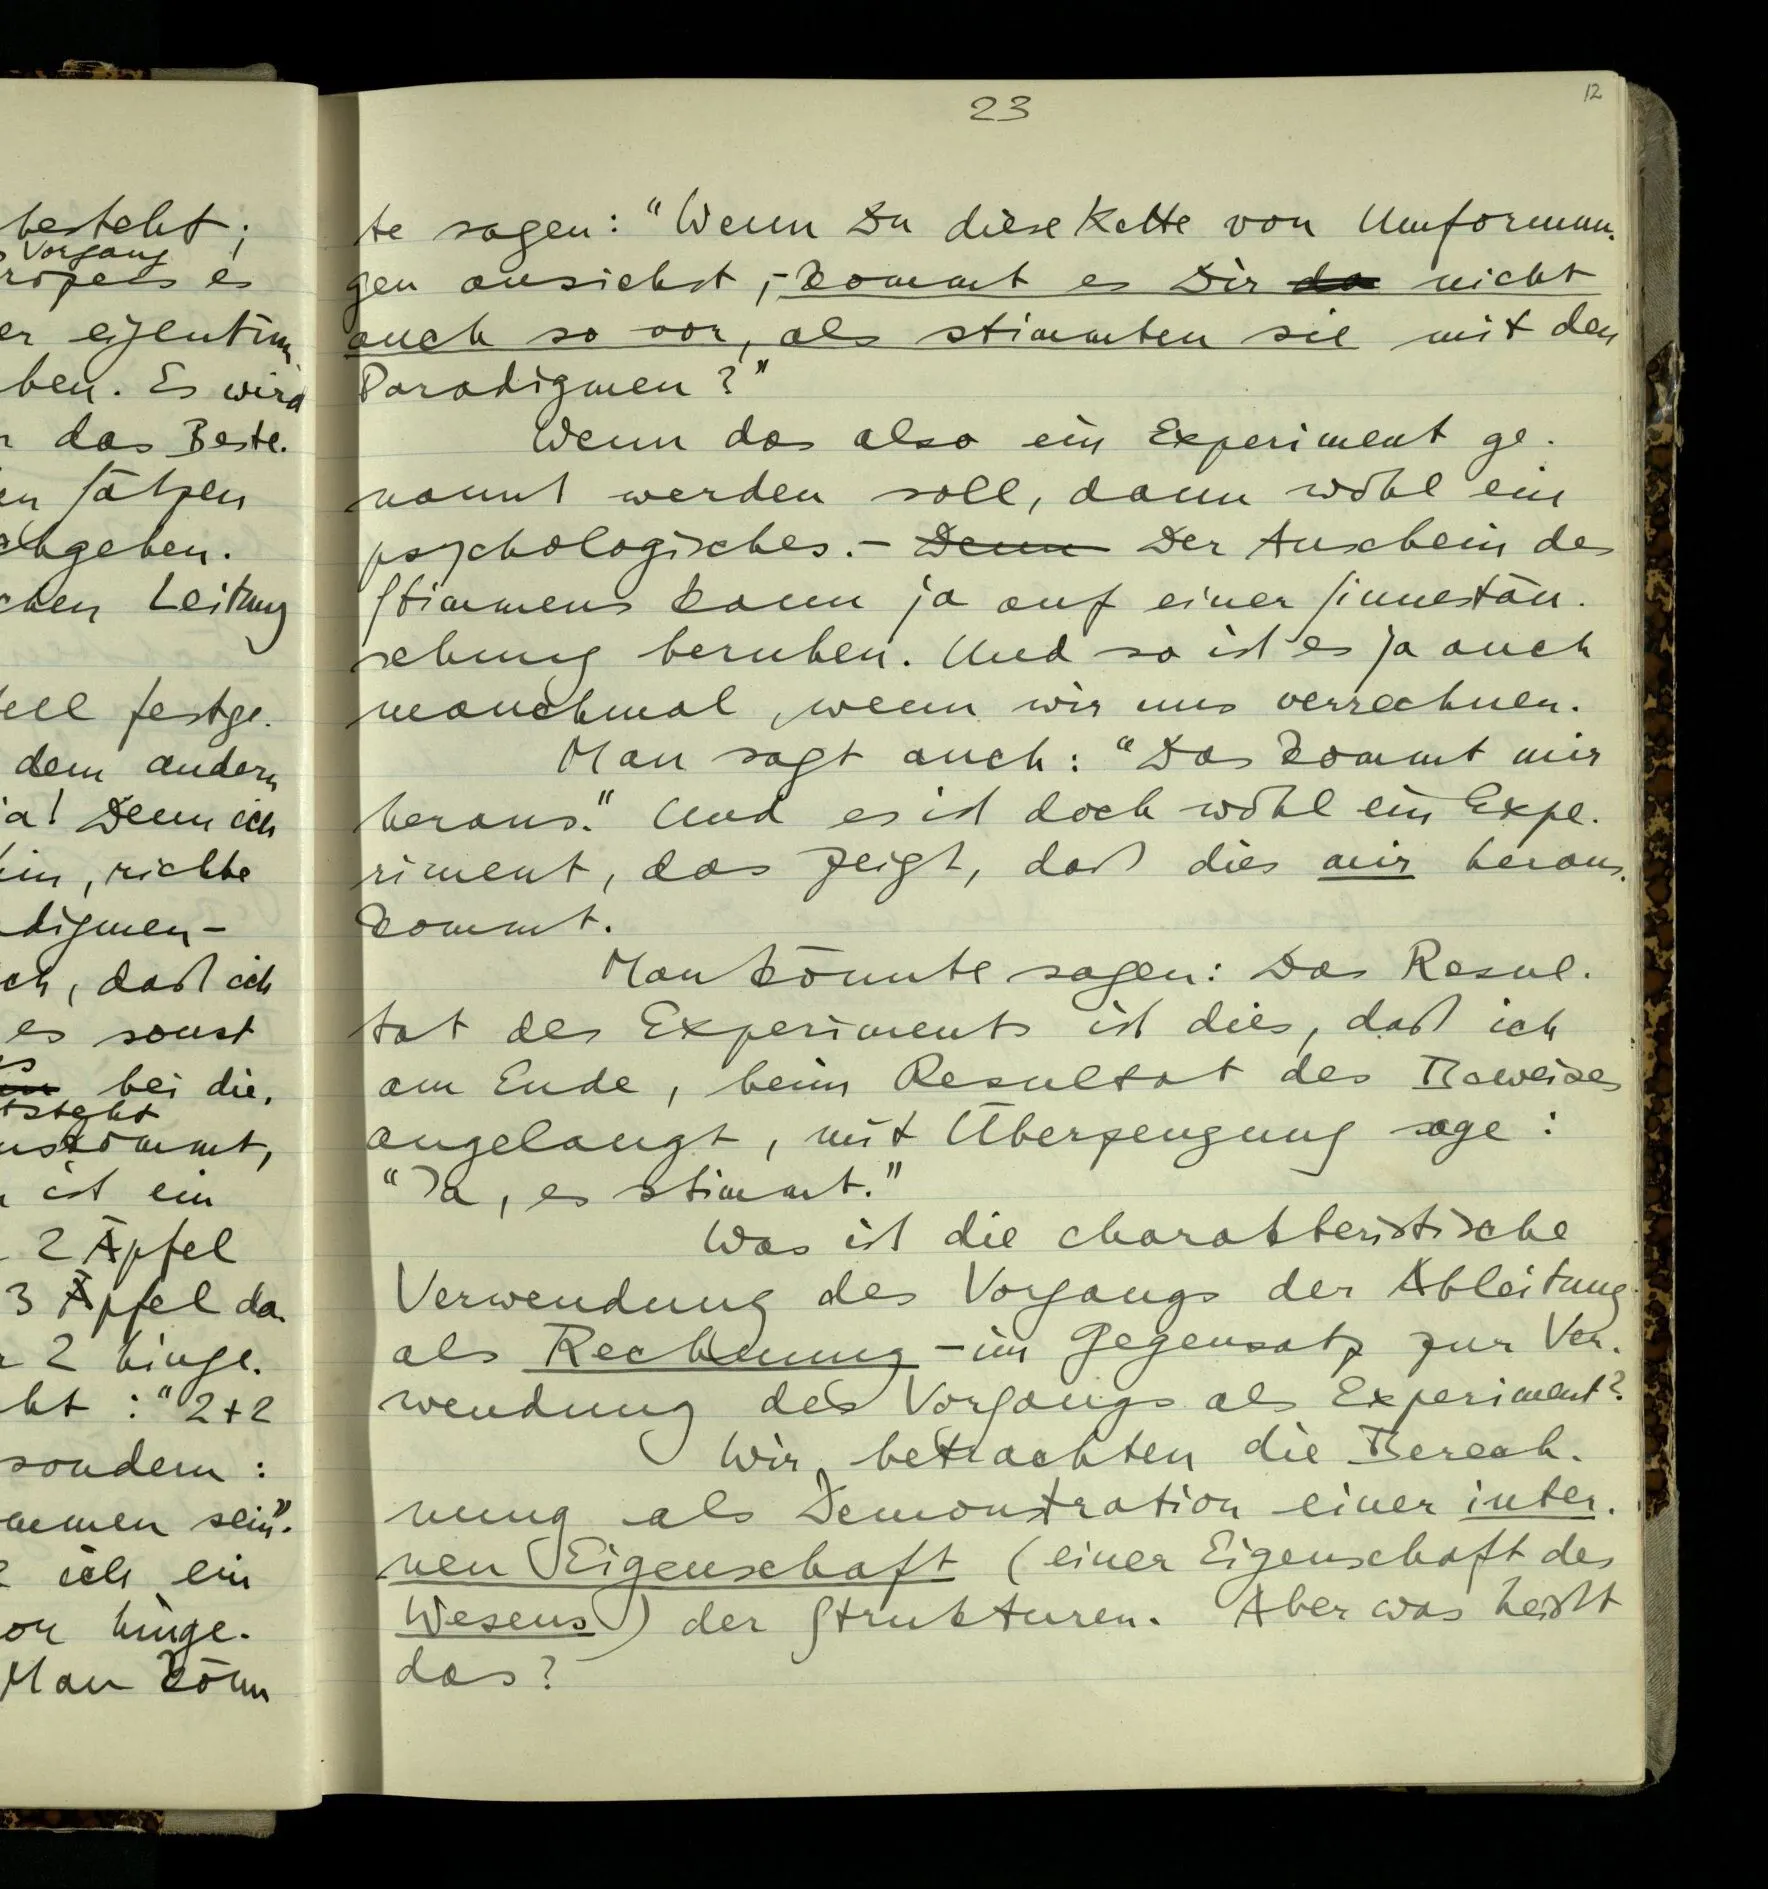 besteht;
Vorgang
es
er eigentüm
ben. Es wird
das Beste.
en Sätzen
chgeben.
chen Leitung
ell festge.
dem andern
a! Denn ich
hin, richte
digmen –
ch, daß ich
es sonst
bei die.
tsteht
uskommt,
ist ein
2 Äpfel
3 Äpfel da
2 hinge.
ht: "2+2
sondern:
ommen sein".
ich ein
on hinge.
Man könn
23
12
te sagen: "Wenn Du diese Kette von Umformun.
gen ansiehst, – kommt es Dir da nicht
auch so vor, als stimmten sie mit den
Paradigmen?"
Wenn das also ein Experiment ge.
nannt werden soll, dann wohl ein
psychologisches. – Denn Der Anschein des
Stimmens kann ja auf einer Sinnestäu.
schung beruhen. Und so ist es ja auch
manchmal, wenn wir uns verrechnen.
Man sagt auch: "Das kommt mir
heraus." Und es ist doch wohl ein Expe.
riment, das zeigt, daß dies mir heraus.
kommt.
Man könnte sagen: Das Resul.
tat des Experiments ist dies, daß ich
am Ende, beim Resultat des Beweises
angelangt, mit Überzeugung sage:
"Ja, es stimmt."
Was ist die charakteristische
Verwendung des Vorgangs der Ableitung
als Rechnung – im Gegensatz zur Ver.
wendung des Vorgangs als Experiment?
Wir betrachten die Berech.
nung als Demonstration einer inter.
nen Eigenschaft (einer Eigenschaft des
Wesens) der Strukturen. Aber was heißt
das?